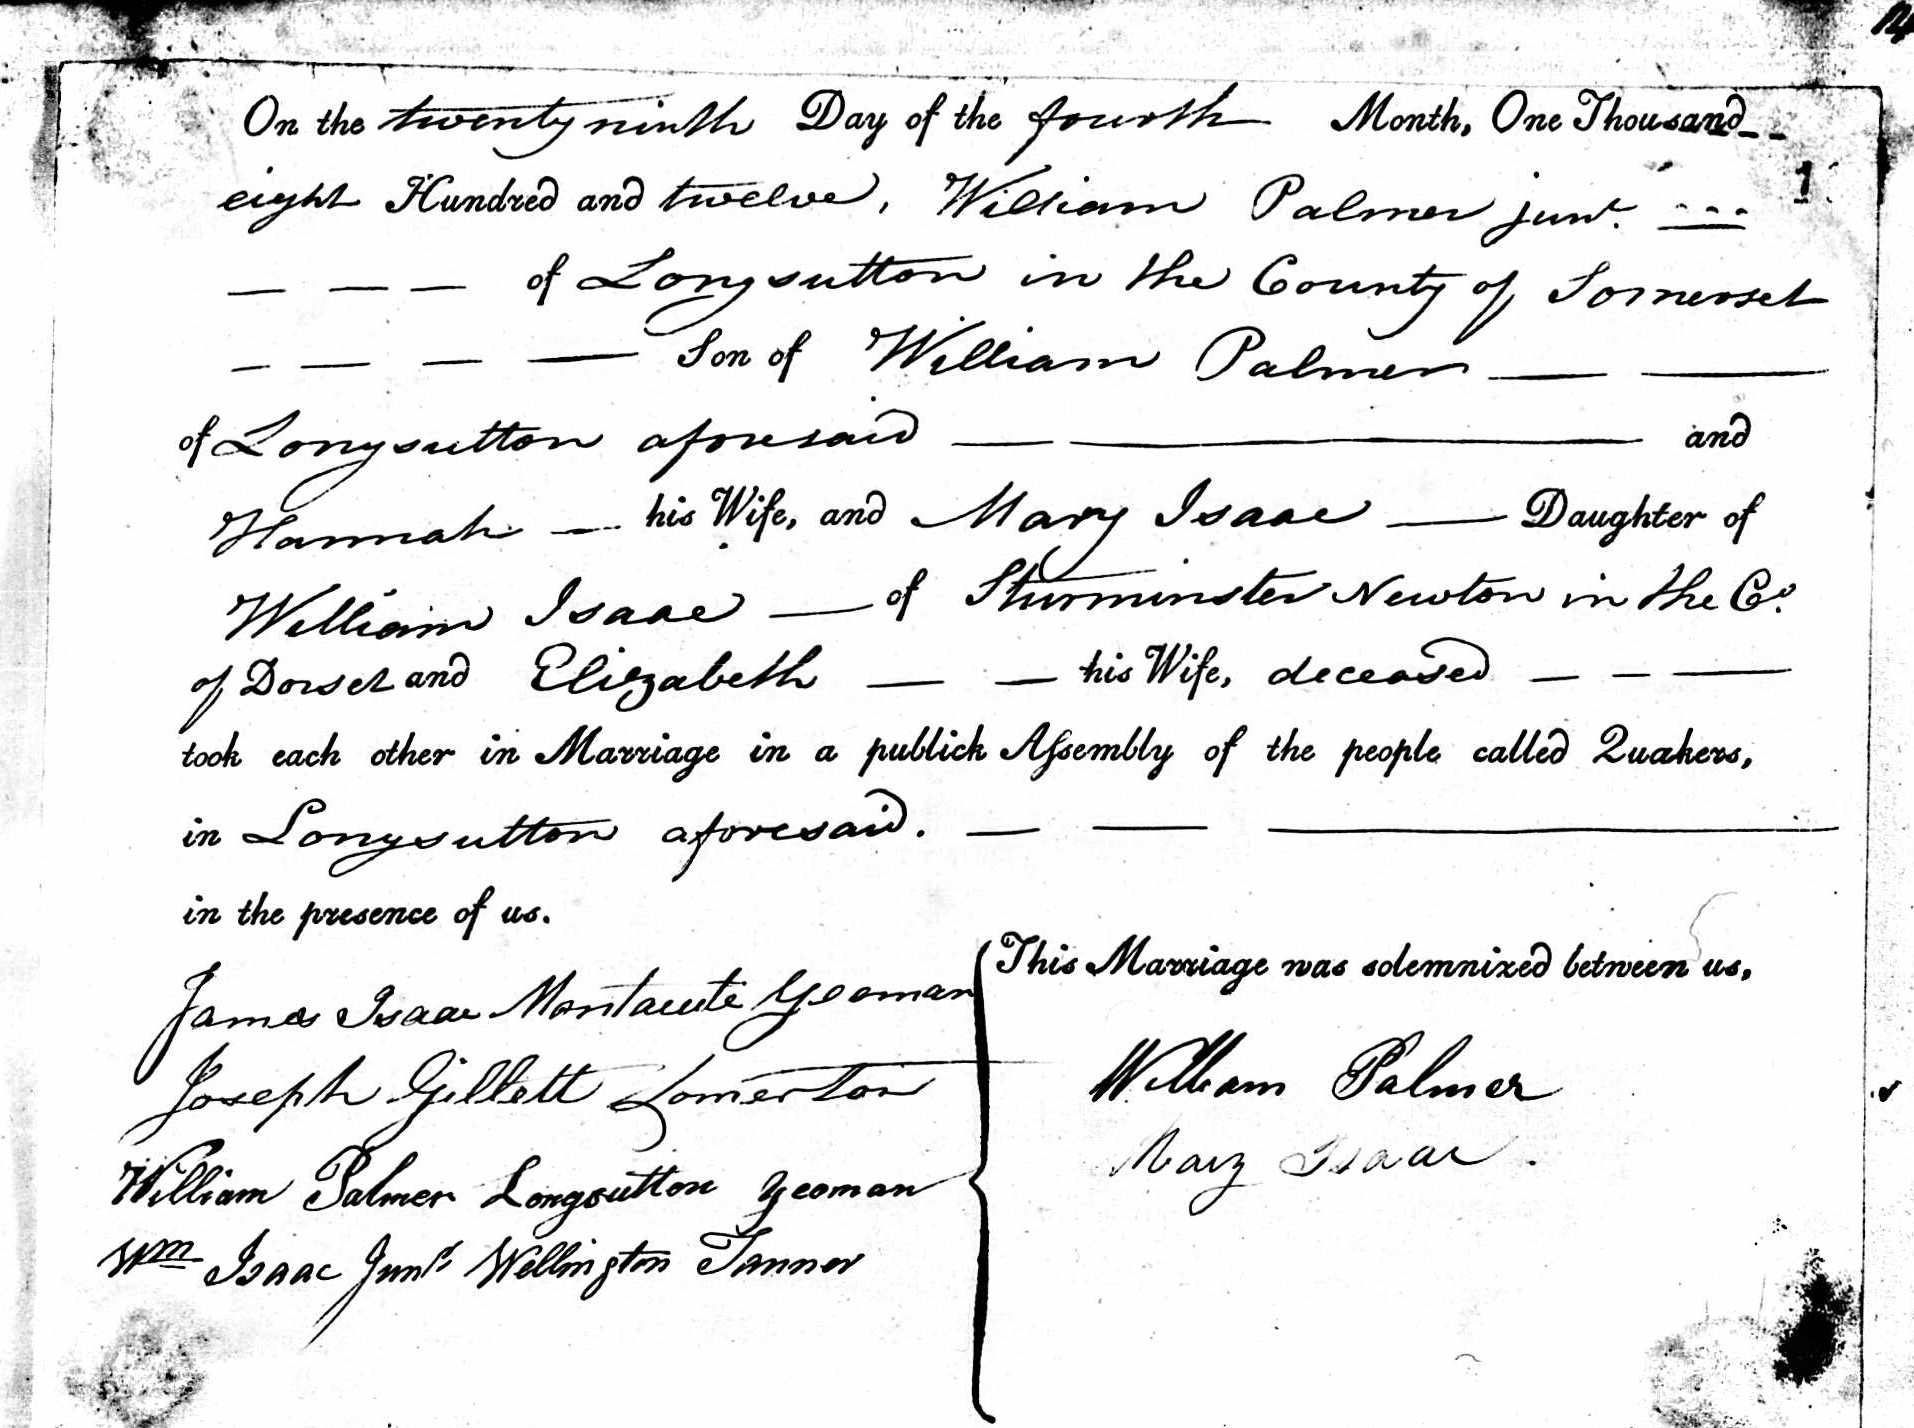 On the twenty ninth Day of the fourth Month, One Thousand
eight Hundred and twelve, William Palmer junr.
1
of Longsutton in the County of Somerset
Son of William Palmer
of Longsutton aforesaid and
Hannah his Wife, and Mary Isaac Daughter of
William Isaac of Sturminster Newton in the Co.
of Dorset and Elizabeth his Wife, deceased
took each other in Marriage in a publick Aſsembly of the people called Quakers,
in Longsutton aforesaid.
in the presence of us.
This Marriage was solemnized between us,
James Isaac Montacute Yeoman
Joseph Gillett Somerton
William Palmer Longsutton Yeoman
Wm Isaac Junr Wellington Tanner
William Palmer
Mary Isaac.